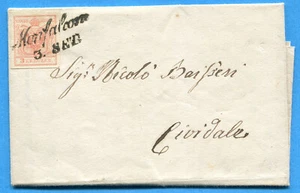 Monfalcone
3. SET
Sigr. Nicolò
Cividale